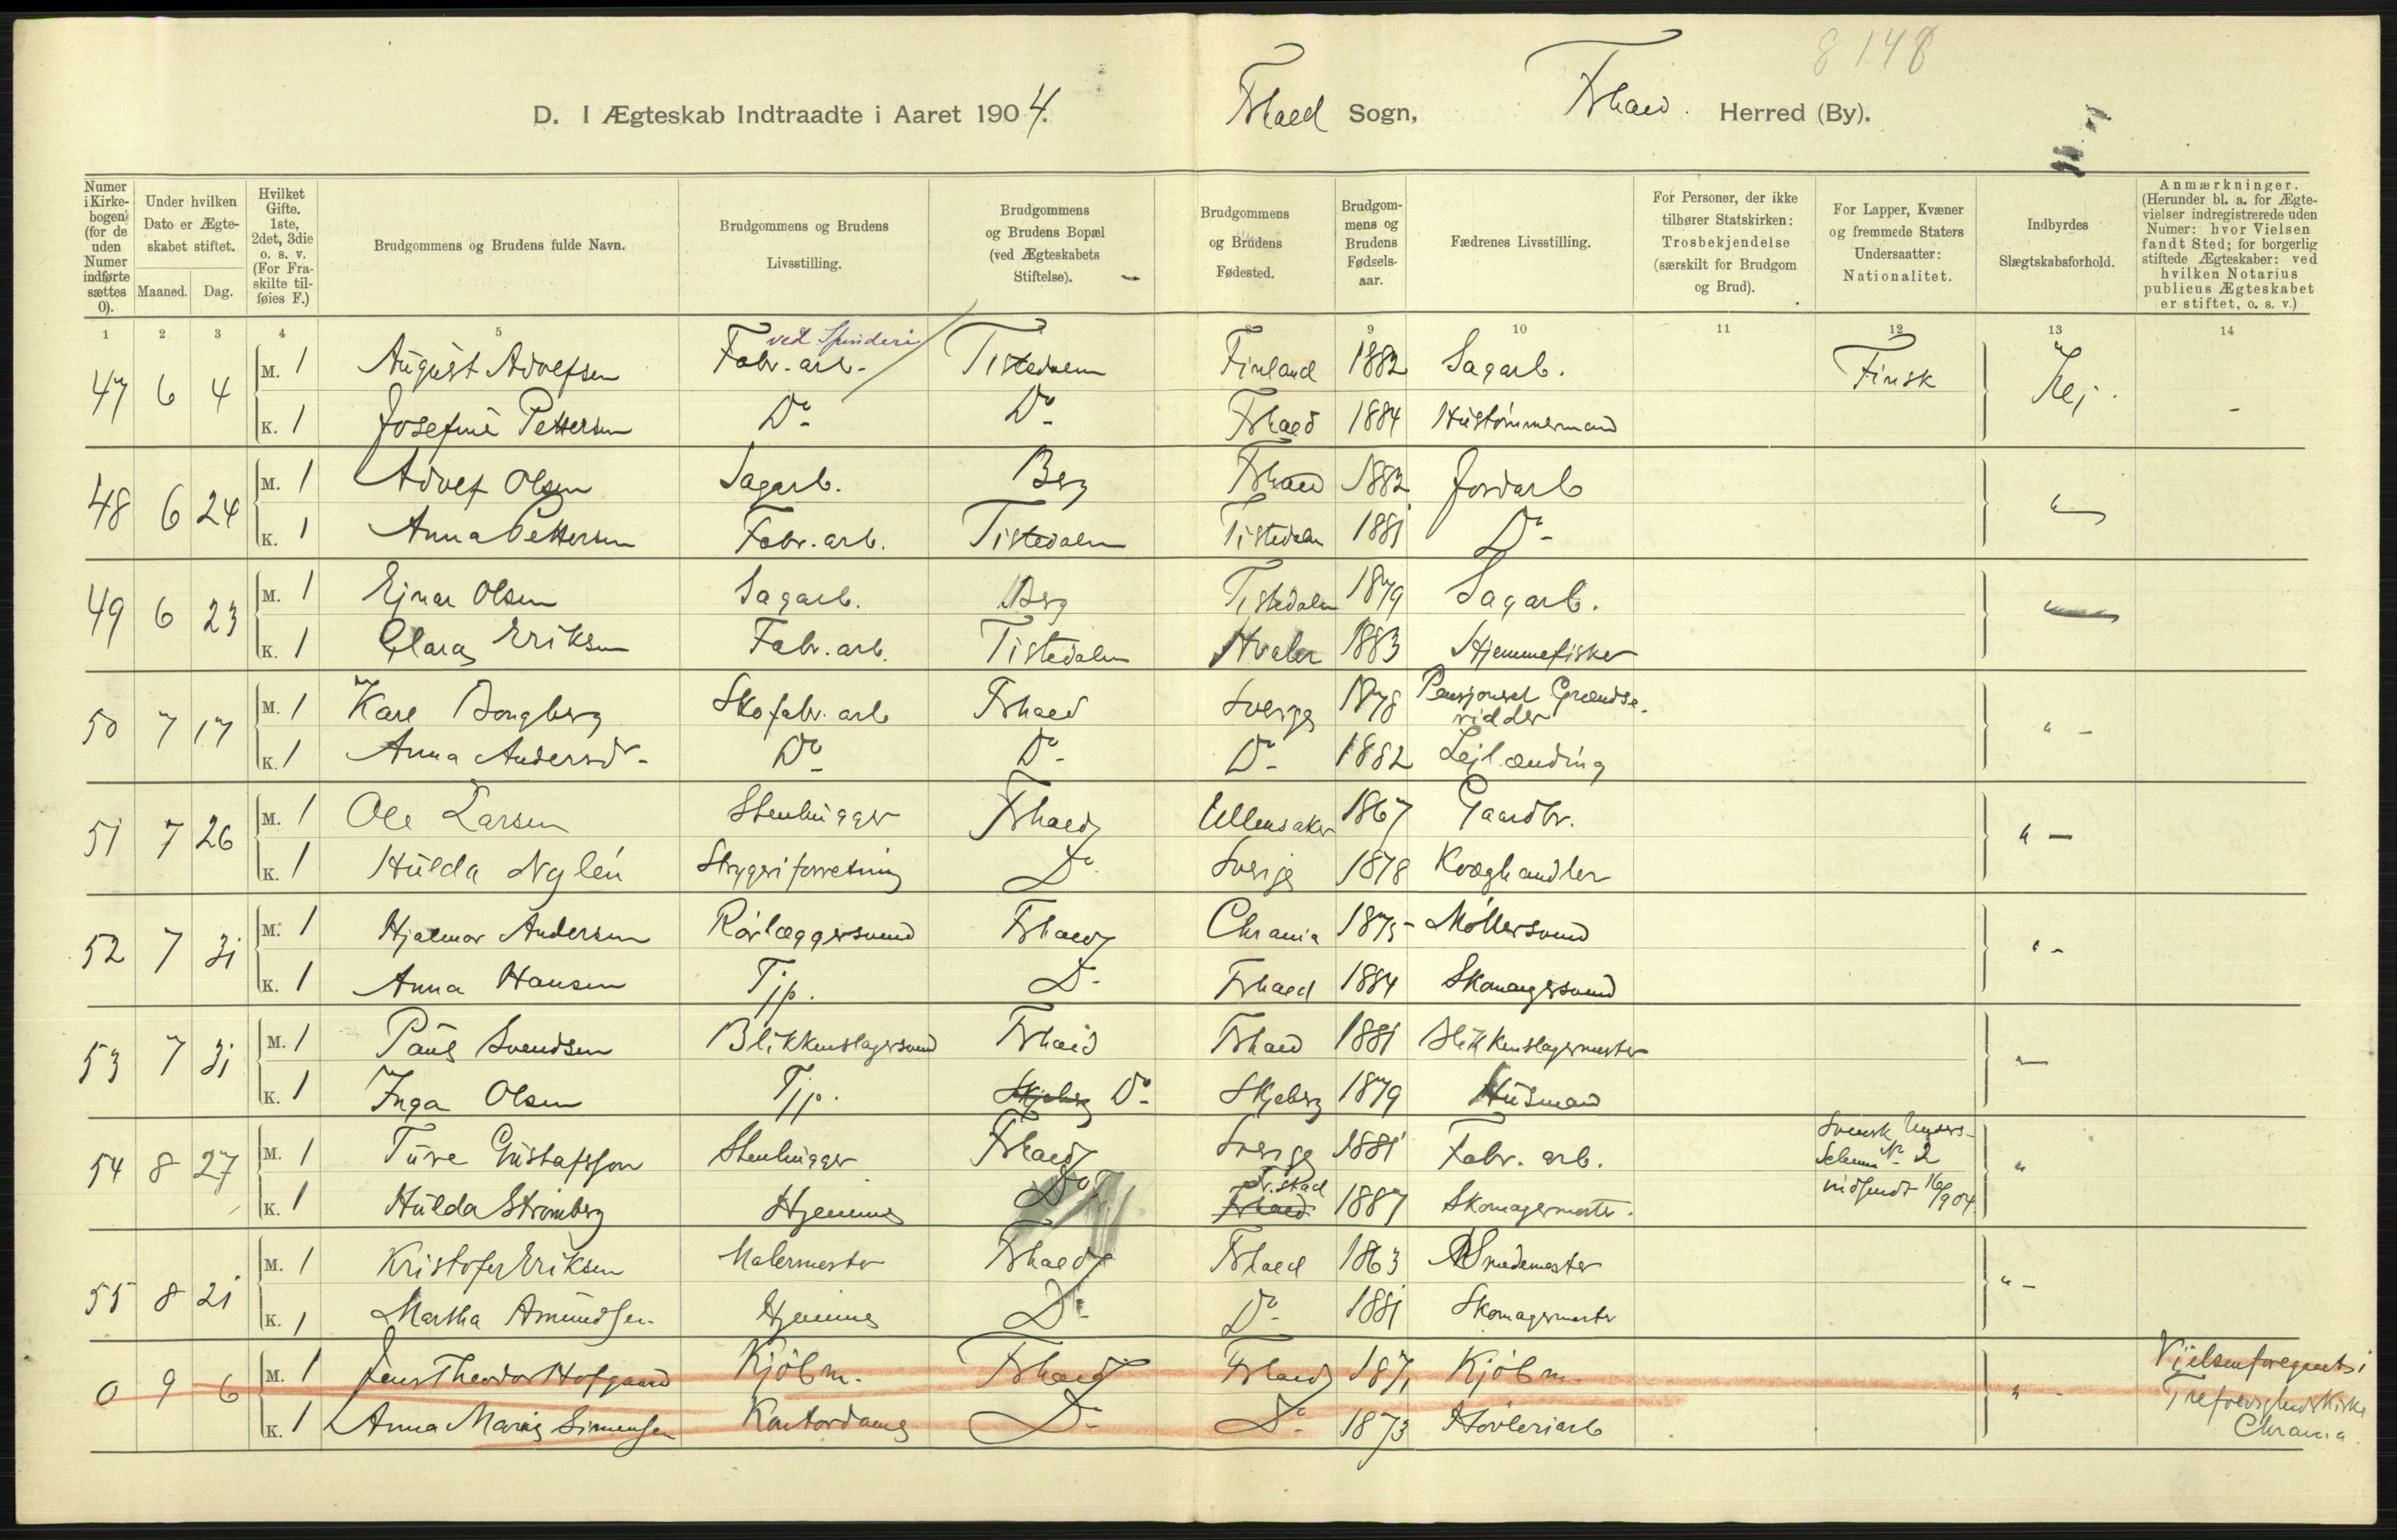 8148
D. I Ægteskab Indtraadte i Aaret 1904. Fkhald Sogn, Fkhald. Herred (By).
Numer i Kirkebogen (for de uden Numer indførte sættes 0).
Under hvilken Dato er Ægteskabet stiftet.
Maaned. Dag.
Hvilket Gifte. 1ste, 2det, 3die o. s. v. (For Fraskilte tilføies F.)
Brudgommens og Brudens fulde Navn.
Brudgommens og Brudens Livsstilling.
Brudgommens og Brudens Bopæl (ved Ægteskabets Stiftelse).
Brudgommens og Brudens Fødested.
Brudgommens og Brudens Fødselsaar.
Fædrenes Livsstilling.
For Personer, der ikke tilhører Statskirken: Trosbekjendelse (særskilt for Brudgom og Brud).
For Lapper, Kvæner og fremmede Staters Undersaatter: Nationalitet.
Indbyrdes Slægtskabsforhold.
Anmærkninger. (Herunder bl. a. for Ægtevielser indregistrerede uden Numer: hvor Vielsen fandt Sted; for borgerlig stiftede Ægteskaber: ved hvilken Notarius publicus Ægteskabet er stiftet, o. s. v.)
1 2 3 4 5 8 9 10 11 12 13 14
ved Spinderi
47 6 4 M. 1 August Adolfsen Fabr. arb. Tistedalen Finland 1882 Sagarb. Finsk Nej.
K. 1 Josefine Pettersen Do - Do - Fkhald 1884 Hustömmermand -
48 6 24 M. 1 Adolf Olsen Sagarb. Berg Fkhald 1882 Jordarb "
K. 1 Anna Pettersen Fabr. arb. Tistedalen Tistedalen 1881 Do -
49 6 23 M. 1 Ejnar Olsen Sagarb. Berg Tistedalen 1879 Sagarb. "
K. 1 Clara Eriksen Fabr. arb. Tistedalen Hvaler 1883 Hjemmefisker
50 7 17 M. 1 Karl Bongberg Skofabr. arb Fkhald Sverige 1878 Pensjoneret Grændseridder " -
K. 1 Anna Andersd - Do - Do - Do - 1882 Lejlænding
51 7 26 M. 1 Ole Larsen Stenhugger Fkhald Ullensaker 1867 Gaardbr. " -
K. 1 Hulda Nylén Strygeriforretning Do Sverige 1878 Kvæghandler
52 7 31 M. 1 Hjalmar Andersen Rörlæggersvend Fkhald Chrania 1875 - Möllersvend " -
K. 1 Anna Hansen Tjp. Do - Fkhald 1884 Skomagersvend
53 7 31 M. 1 Paul Svendsen Blikkenslagersvend Fkhald Fkhald 1881 Blikkenslagermester " -
K. 1 Inga Olsen Tjp. Skjeberg Do - Skjeberg 1879 Husmand
54 8 27 M. 1 Ture Gustafsson Stenhugger Fkhald Sverige 1881 Fabr. arb. Svensk Unders. "
Schema No 2
indsendt 16/9 04
K. 1 Hulda Strömberg Hjemme Do Fr.stad Fkhald 1887 Skomagermester.
55 8 21 M. 1 Kristofer Eriksen Malermester Fkhald Fkhald 1863 Smedemester " -
K. 1 Martha Amundsen Hjemme Do - Do - 1881 Skomagermester
0 9 6 M. 1 Jens Theodor Hofgaard Kjöbm. Fkhald Fkhald 1871 Kjöbm. " - Vielsen foregaaet i
Trefoldigheds Kirke
Chrania.
K. 1 Anna Marie Simensen Kontordame Do - Do - 1873 Hövleriarb